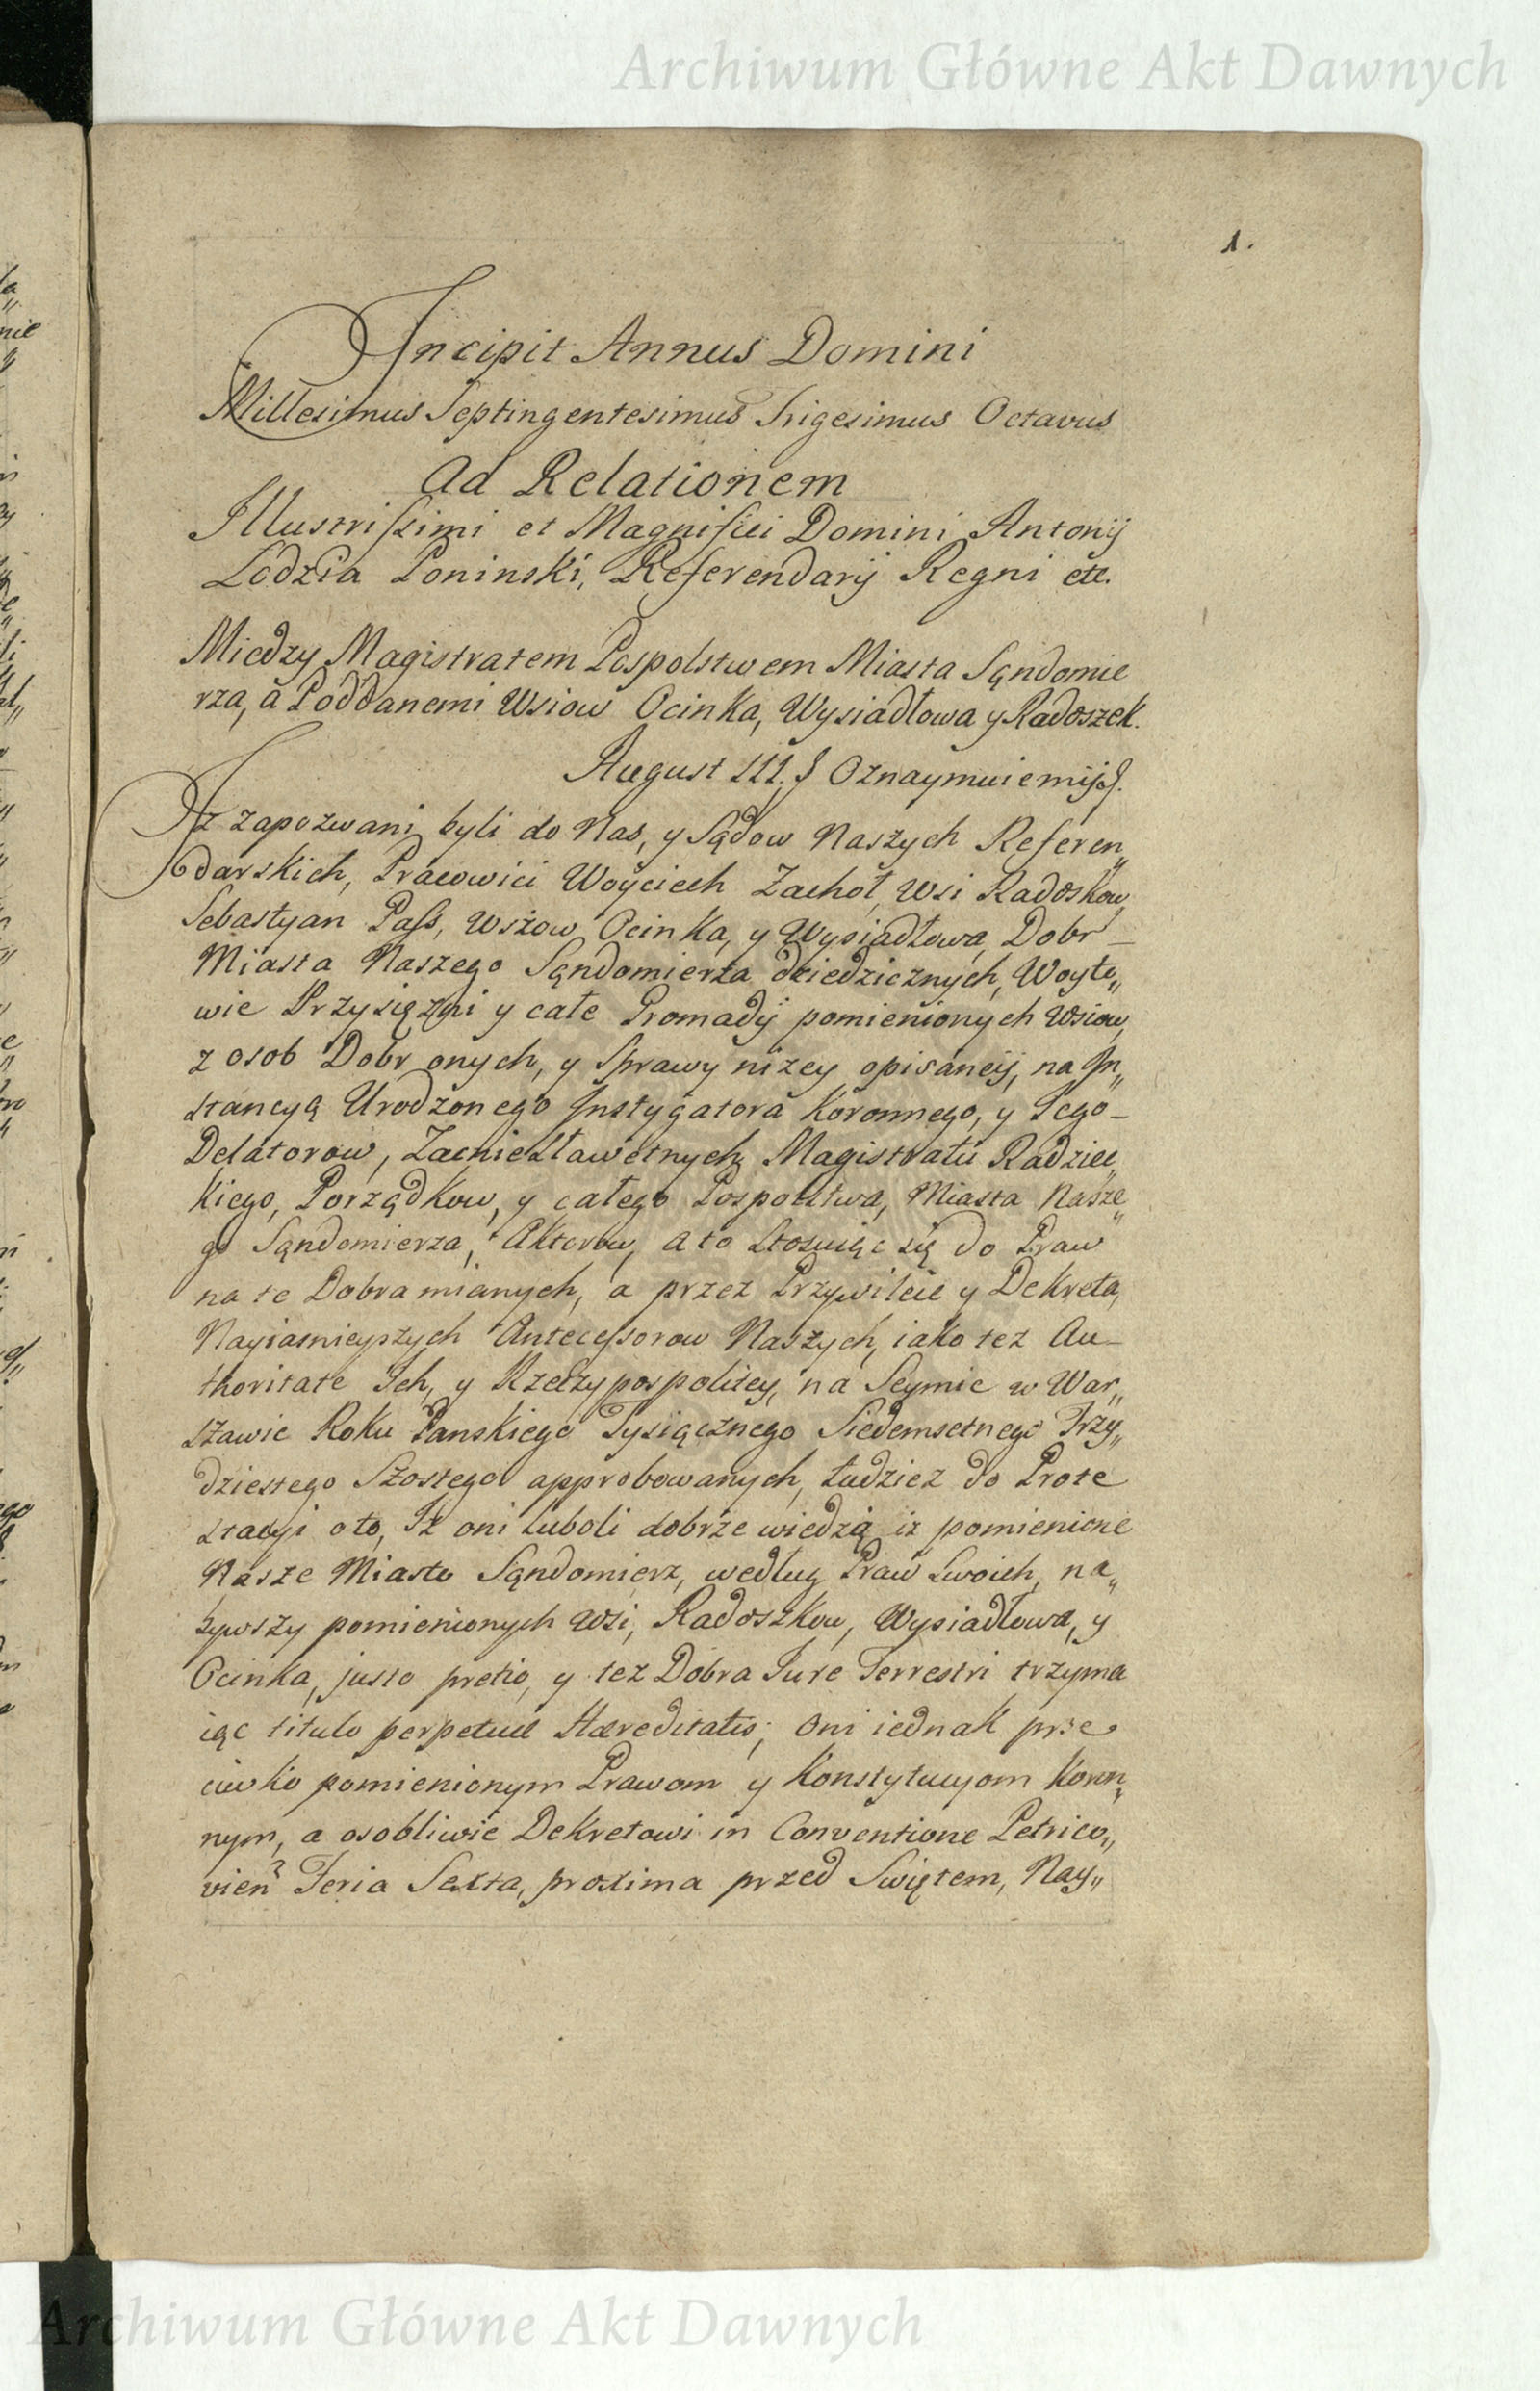 Archiwum Główne Akt Dawnych
1.
Incipit Annus Domini
Millesimus Septingentesimus Trigesimus Octavus
Ad Relationem
Illustrissimi et Magnifici Domini Antonij
Lodzia Poninski, Referendarij Regni etc.
Miedzy Magistratem Pospolstwem Miasta Sąndomie
rza, a Poddanemi Wsiow Ocinka, Wysiadłowa y Radoszek.
August III. § Oznaymuiemij §.
Iz zapozwani byli do Nas, y Sądow Naszych Referen„
darskich, Pracowici Woyciech Zachoł, Wsi Radoskow,
Sebastyan Pass, Wsiow Ocinka, y Wysiadłowa, Dobr –
Miasta Naszego Sąndomierza dziedzicznych, Woyto„
wie Przysięzni y całe Gromady pomienionych Wsiow,
z osob Dobr onych, y Sprawy nizey opisaney, na In„
stancyą Urodzonego Instygatora Koronnego, y Jego –
Delatorow, Zacnie Sławetnych Magistratu Radziec„
kiego, Porządkow, y całego Pospolstwa, Miasta Nasze„
go Sąndomierza, Aktorow, a to stosuiąc się do Praw
na te Dobra mianych, a przez Przywileie y Dekreta,
Nayiasnieyszych Antecessorow Naszych, iako tez Au–
thoritate Ich, y Rzeczypospolitey, na Seymie w War„
szawie Roku Panskiego Tysiącznego Siedemsetnego Trzy„
dziestego Szostego approbowanych, tudziez do Prote
stacyi oto, Iz oni luboli dobrze wiedzą iz pomienione
Nasze Miasto Sąndomierz, według Praw swoich, na„
bywszy pomienionych Wsi, Radoszkow, Wysiadłowa, y
Ocinka, justo pretio, y tez Dobra Jure Terrestri trzyma
iąc titulo perpetuæ Hæreditatis; oni iednak prze
ciwko pomienionym Prawom y Konstytucyom Koron„
nym, a osobliwie Dekretowi in Conventione Petrico„
vien Feria Sexta, proxima przed Swiętem, Nay„
Archiwum Główne Akt Dawnych